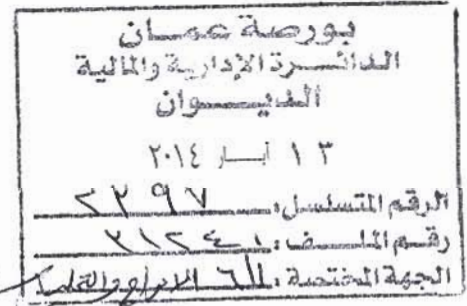 بورصة عمان
الدائرة الإدارية والمالية
الديوان
١٣ أيار ٢٠١٤
الرقم المتسلسل: ٢٢٩٧
رقم الملف: ٣١٢٤١
الجهة المختصة: الادراج والتداول